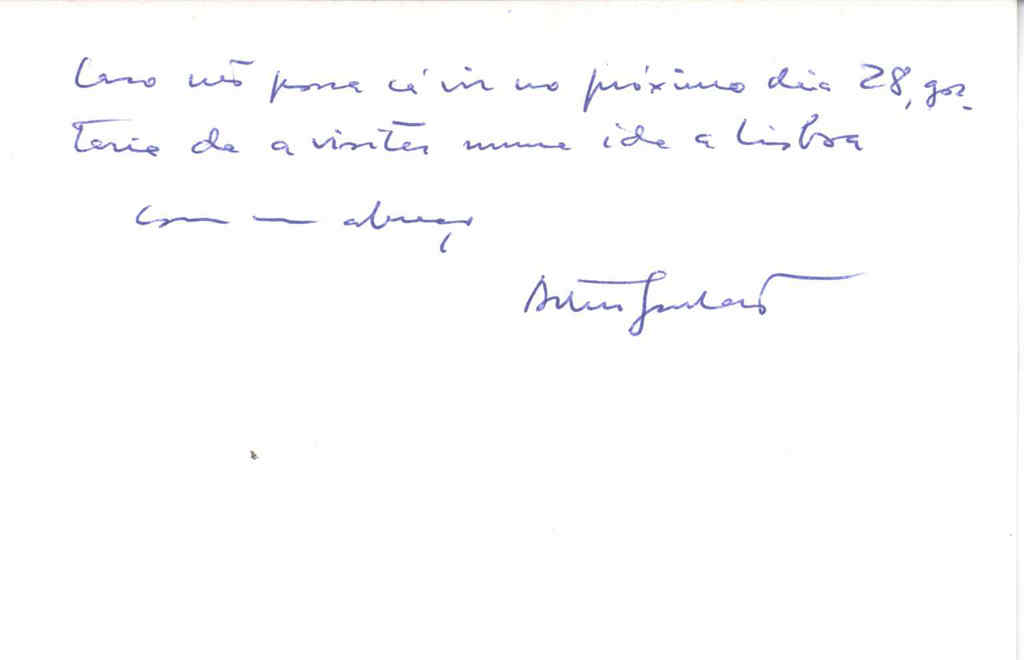 Caso não possa cá vir no próximo dia 28, gos-
taria de a visitar numa ida a Lisboa
Com um abraço